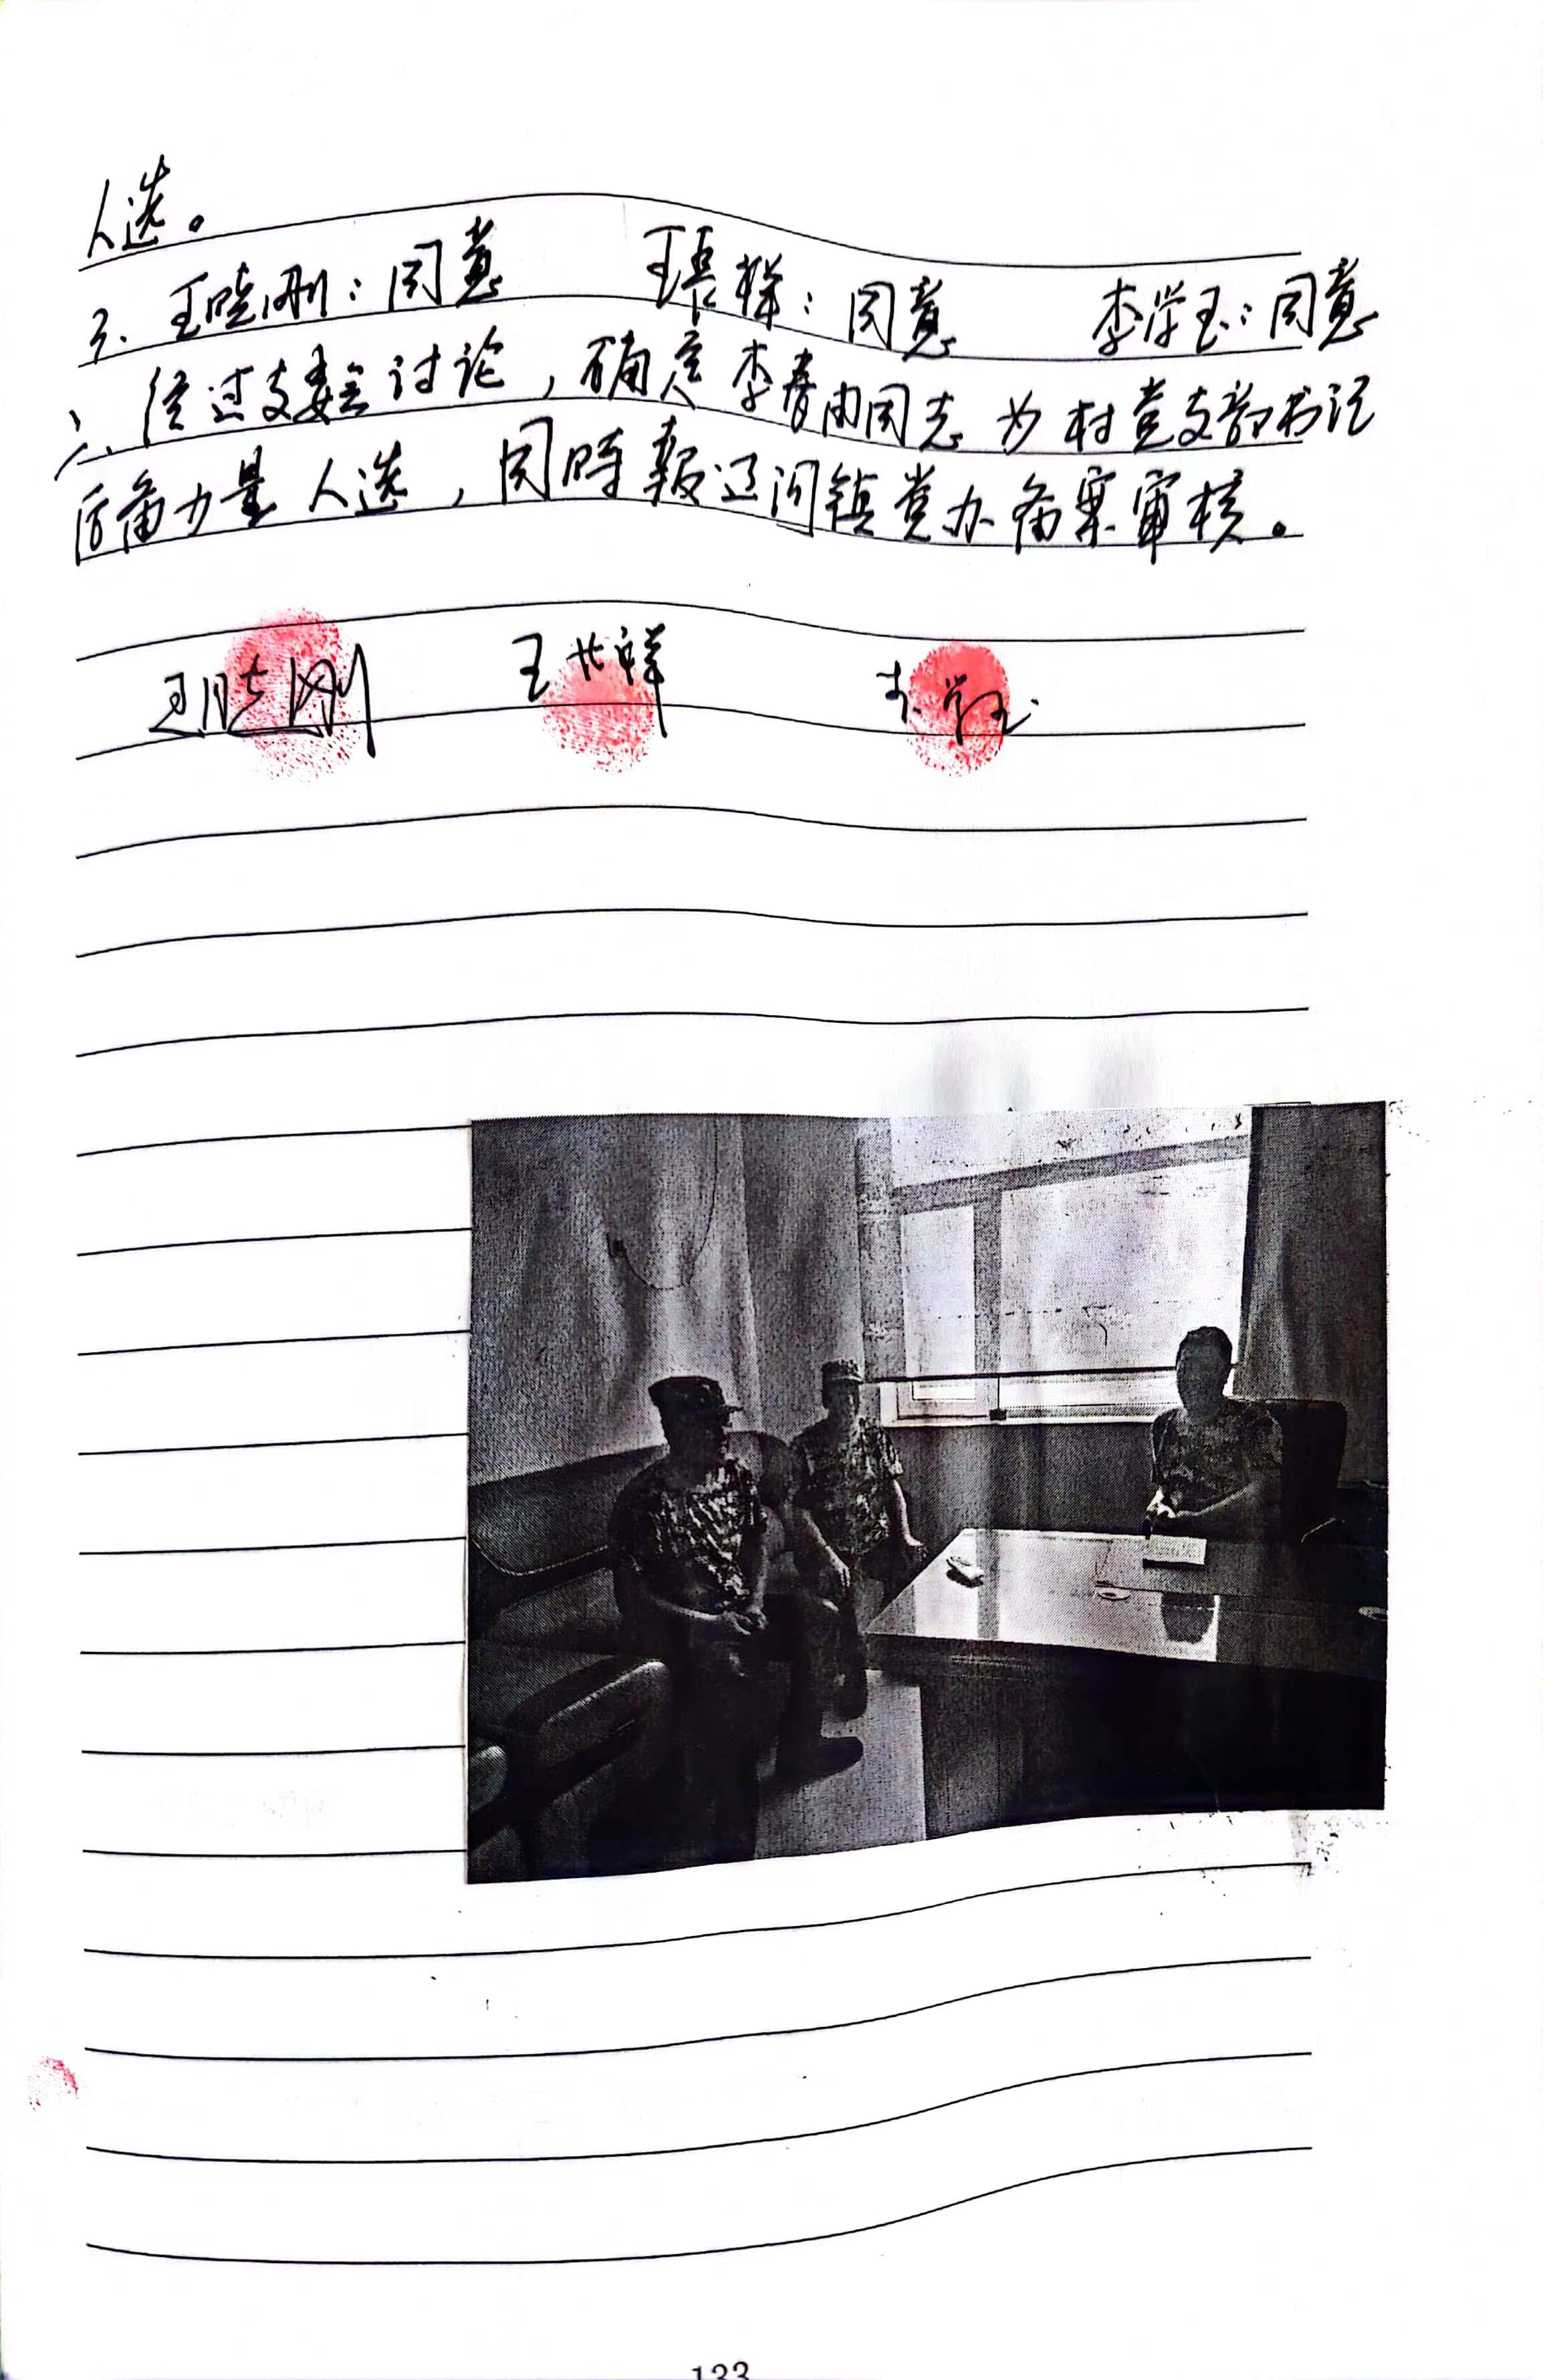 人选。
3. 王晓刚：同意 王长祥：同意 李学玉：同意
六、经过支委会讨论，确定李春由同志为村党支部书记
后备力量人选，同時報辽河镇党办备案审核。
王晓刚 王长祥 李学玉
133